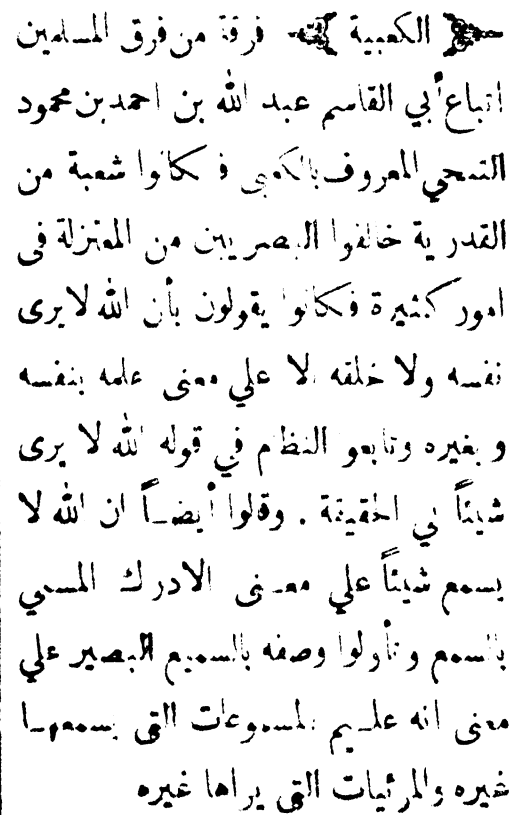 ﴿ الكعبية ﴾ فرقة من فرق المسلمين
اتباع أبي القاسم عبد الله بن احمد بن محمود
المعروف بالكعبى فكانوا شعبة من
القدرية خالفوا البصريين من المعتزلة فى
امور كثيرة فكانوا يقولون بأن الله لا يرى
نفسه ولا خلقه الا علي معنى علمه بنفسه
وبغيره وتابعوا النظام في قوله الله لا يرى
شيئاً في الحقيقة . وقالوا أيضاً ان الله لا
يسمع شيئاً علي معنى الادرك المسمي
بالسمع وتأولوا وصفه بالسميع البصير علي
معنى انه عليم بالمسموعات التى يسمعها
غيره والمرئيات التى يراها غيره